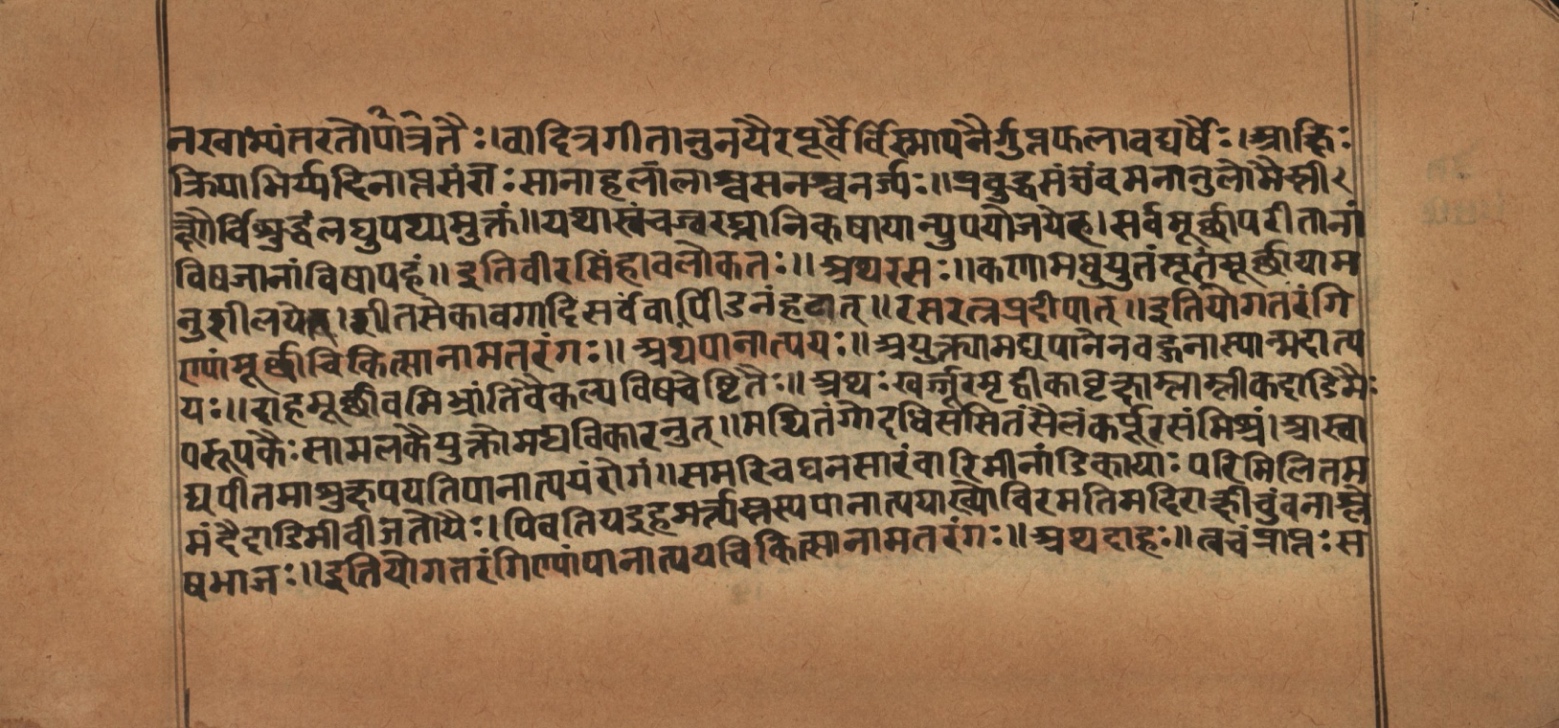 नखाभ्यंतरतोपोत्रतैः।वादित्रगीतानुनयैरपूर्वैर्विस्मापनैर्गुप्तफलावघर्षैः।आह्निः
क्रियाभिर्य्यदिनाप्तसंज्ञैः सानाहलालाश्वसनश्वनर्ज्यः॥प्रबुद्धसंज्ञंवमनानुलोमैस्ती
क्ष्णैर्विशुद्धंलघुपथ्यमुक्तं॥यथास्वंचज्वरघ्नानिकषायान्युपयोजयेत्।सर्वमूर्च्छापरीतानां
विषजानांविषापहं॥इतिवीरसिंहावलोकतः॥अथरसः॥कणामधुयुतंसूतंमूर्च्छायाम
नुशीलयेत्।शीतसेकावगादिसर्ववापीडनंहठात्॥रसरत्नप्रदीपात्॥इतियोगतरंगि
ण्यांमूर्च्छाचिकित्सानामतरंगः॥अथपानात्ययः॥अयुक्त्यामद्यपानेनवह्नुनास्यान्मदात्य
यः॥दाहमूर्च्छावमिभ्रांतिवैकल्यविषचेष्टितैः॥अथः खर्जूरमृद्वीकावृक्षाम्लाम्लीकदाडिमैः
परूषकैः सामलकैयुक्तोमद्यविकारनुत्॥मथितंगोदधिससितंसैलंकर्पूरसंमिश्रं।आस्वा
द्यपीतमाशुक्षपयतिपानात्ययंरोगं॥समरिचघनसारंवारिमीनांडिकायाः परिमिलितम
मंदैदाडिमीवीजतोयैः।पिवतियइहमर्त्त्यस्तस्यपानात्ययाख्योविरमतिमदिराक्षीचुंवनाश्ले
षभाजः॥इतियोगतरंगिण्यांपानात्ययचिकित्सानामतरंगः॥अथदाहः॥त्वचंप्राप्तः स